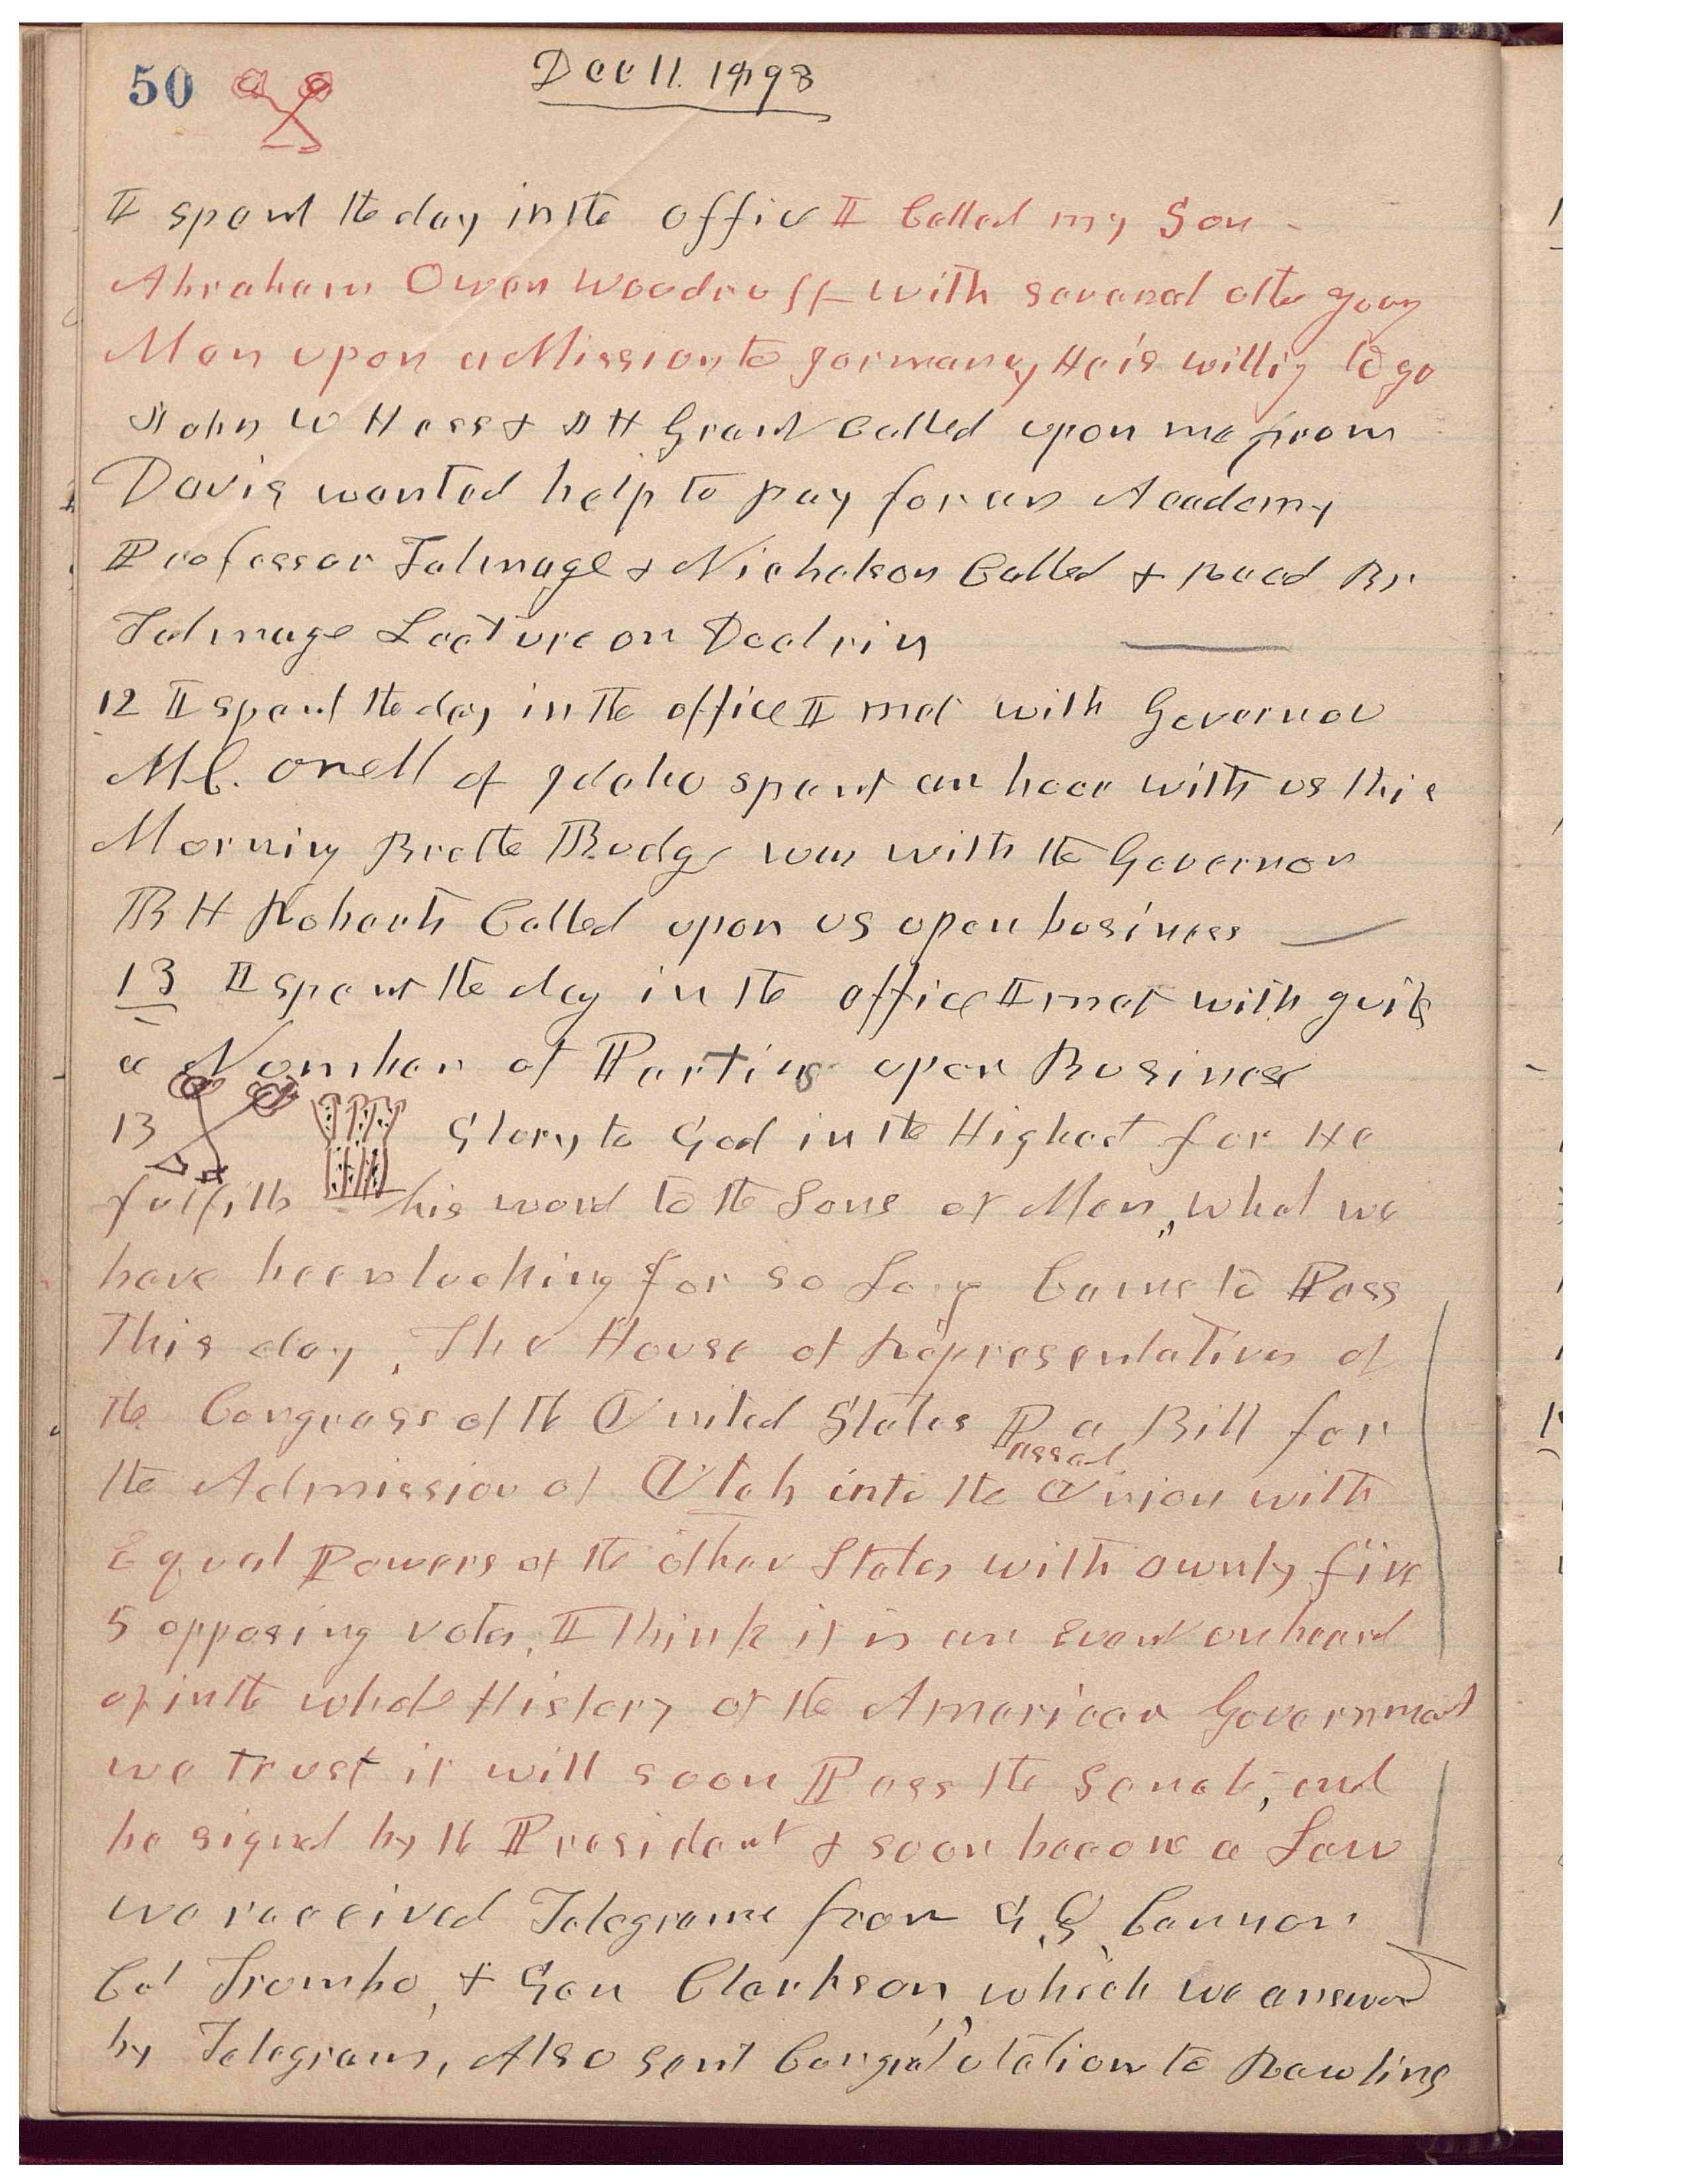 50
Dec 11. 1893
I spent the day in the offic I Called my Son
Abraham Owen Woodruff with several othe young
Men upon a Mission to germany He is willig to go
John W Hess & J H Grant Called upon me from
Davis wanted help to pay for an Academy
Professor Talmage & Nicholson Called & Read Br
Talmage Lecture on Doctrin
12 I spent the day in the office I met with Governor
Mc. Connell of Idaho spent an hour with us this
Morning Brothe Budge was with the Governor
B H Roberts Called upon us upon business
13 I spent the day in the office I met with quite
a Number of Parties upon Business
13 Glory to God in the Highest for He
fulfills his word to the Sons of Men, what we
have been looking for so Long Came to Pass
This day, The House of Representatives of
the Congress of the United States P a Bill for
assed
the Admission of Utah into the Union with
Equal Powers of the other States with ownly five
5 opposing votes, I think it is an Event unheard
of in the whole History of the American Government
we trust it will soon Pass the Senate, and
be signed by the President & soon become a Law
we received Telegrams from G. Q. Cannon
Col Trumbo, & Gen Clarkson, which we answered
by Telegram, Also sent Congratulation to Rawlins